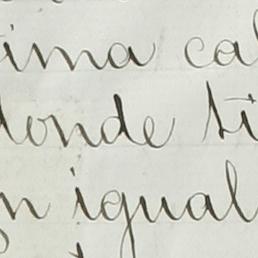 ima ca
onde ti
n igual